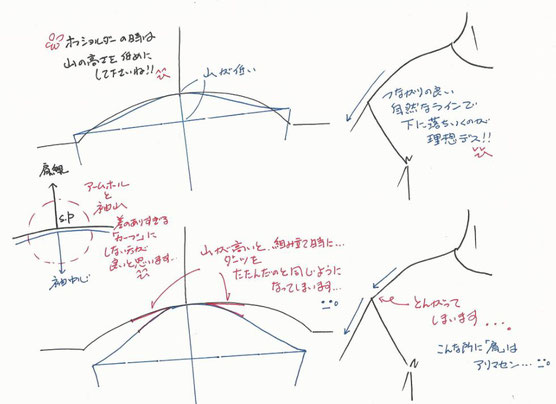 オフショルダーの時は
山の高さを低めに
して下さいね!!
山が低い
つながりの良い
自然なラインで
下に落ちていくのが
理想デス!!
肩線
アームホール
と
袖山
S.P
差のありすぎる
「カーブ」に
しない方が
良いと思います...
袖中心
山が高いと、組み立て時に...
ダーツを
たたんだのと同じように
なってしまいます...
とんがって
しまいます....
こんな所に「肩」は
アリマセン...